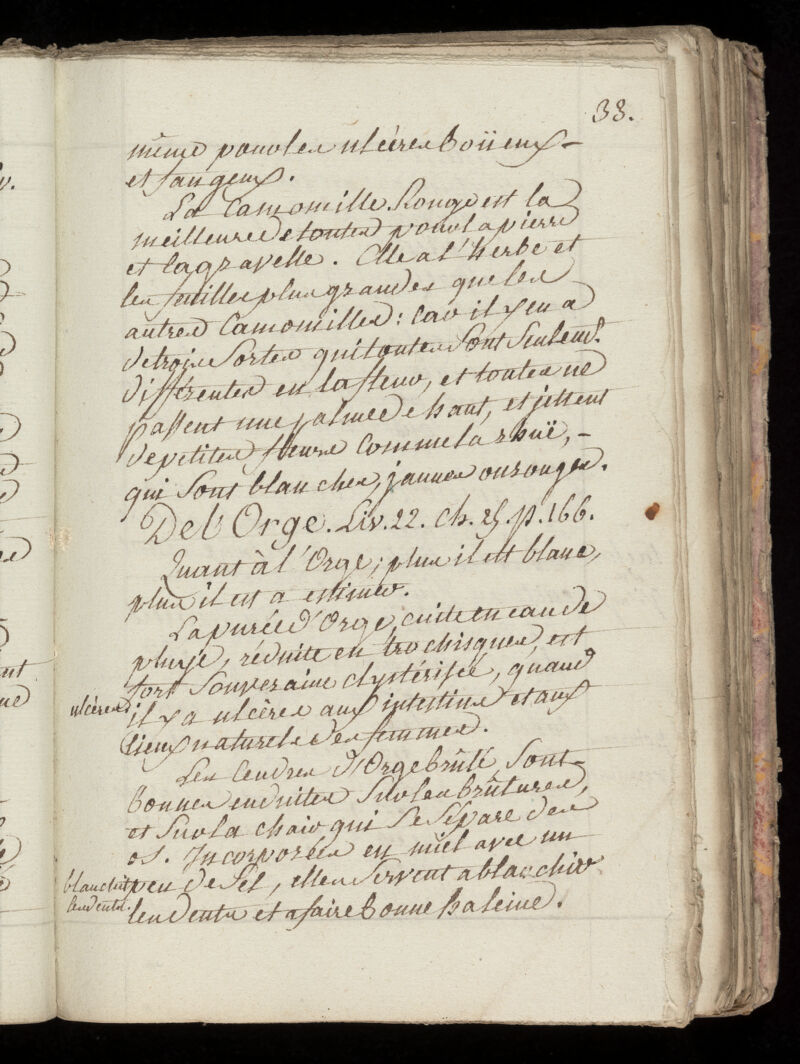 33.
même pour les ulcéres Boüeux
et fangeux.
La Camomille Rouge est la
meilleure de toutes pour la pierre
et la gravelle. Elle a l'herbe et
les feuilles plus grandes que les
autres Camomilles : car il y en a
de trois Sortes qui toutes Sont Seulemt.
différentes en la fleur, et toutes ne
passent une palme de haut, et jettent
de petites fleurs comme la rhuë, -
qui Sont blanches, jaunes ou rouges.
De l'Orge. Liv. 22. ch. 25. p. 166.
Quant à l'Orge ; plus il est blanc,
plus il est a estimer.
La purée d'Orge, cuite en eau de
pluye, réduite en trochisques, est
fort Souveraine clystérisée, quand
ulcères
il y a ulcères aux intestins et aux
lieux naturels des femmes.
Les Cendres d'Orge brûlé, Sont
bonnes enduites Sur les brûtures,
et Sur la chair qui Se Sépare des
os. Incorporées en miel avec un
blanchir
les dents.
peu de Sel, elles Servent a blanchir
les dents et a faire Bonne haleine.